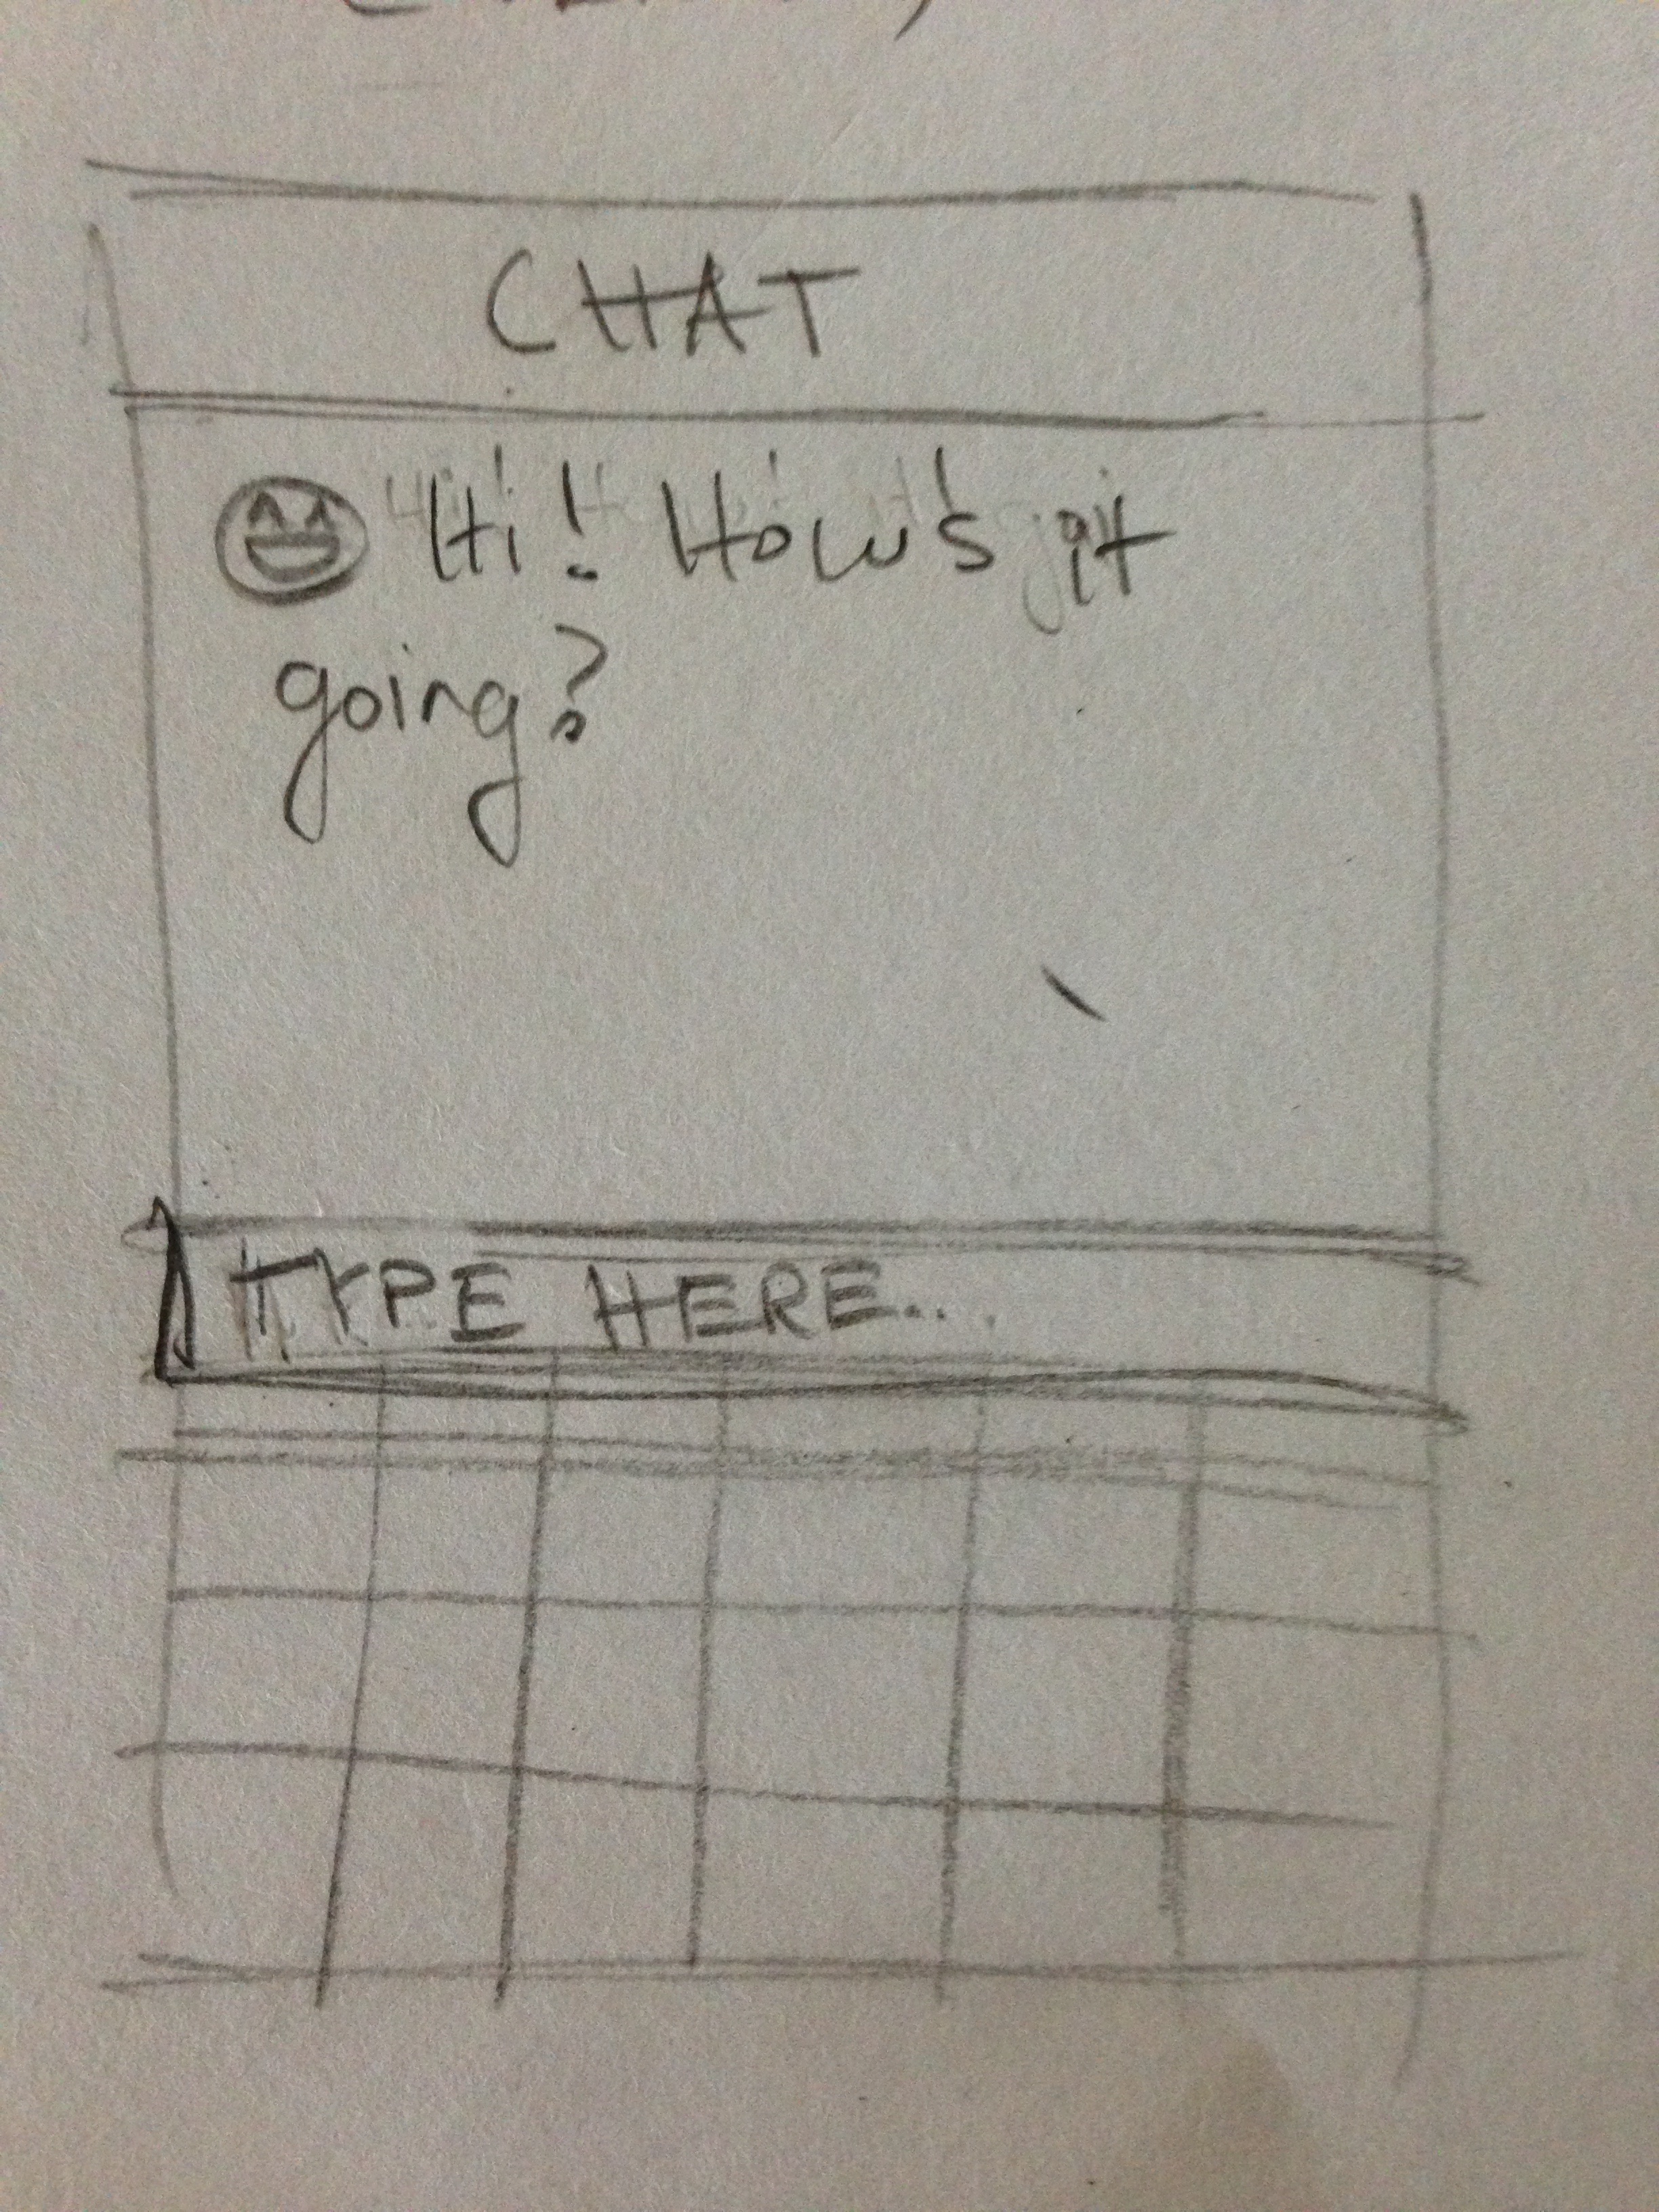 CHAT
Hi! How's it
going?
TYPE HERE...